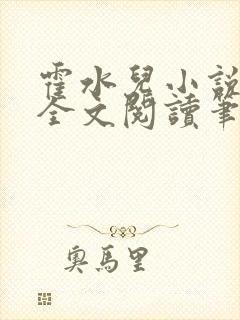 霍水兒小說
全文閱讀筆
奧馬里